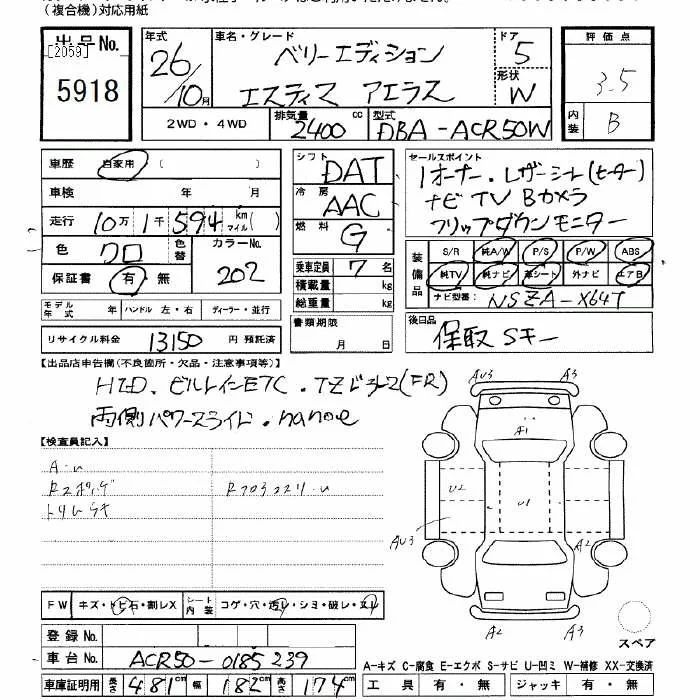 (複合機)対応用紙
出品No. [2059] 5918
年式 26/10月
車名・グレード ベリーエディション
エスティマ アエラス
ドア 5
形状 W
2WD・4WD
排気量 2400 cc
型式 DBA-ACR50W
評価点 3.5
内装 B
車歴 自家用 ( )
車検 年 月
走行 10万1千594 km マイル( )
色 クロ 色替 カラーNo. 202
保証書 有・無
モデル年式 年 ハンドル 左・右 ディーラー・並行
リサイクル料金 13150 円 預託済
シフト DAT
冷房 AAC
燃料 G
乗車定員 7 名
積載量 kg
総重量 kg
書類期限 月 日
セールスポイント
1オーナー.レザーシート(ヒーター)
ナビ TV Bカメラ
フリップダウンモニター
装備品 S/R 純A/W P/S P/W ABS
純TV 純ナビ 革シート 外ナビ エアB
ナビ型番: NSZA-X64T
後日品 保取 Sキー
【出品店申告欄(不良箇所・欠品・注意事項等)】
HID.ビルトインETC.
両側パワースライド.nanoe
【検査員記入】
A・U
トリムキ
AU3 A3
A1
U2 U1
AU3 A2
A2 A3
スペア
FW キズ・トビ石・割レX シート内装 コゲ・穴・透レ・シミ・破レ・スレ
登録No.
車台No. ACR50-0185239
車庫証明用 長さ 481cm 幅 182cm 高さ 174cm
A-キズ C-腐食 E-エクボ S-サビ U-凹ミ W-補修 XX-交換済
工具 有・無 ジャッキ 有・無